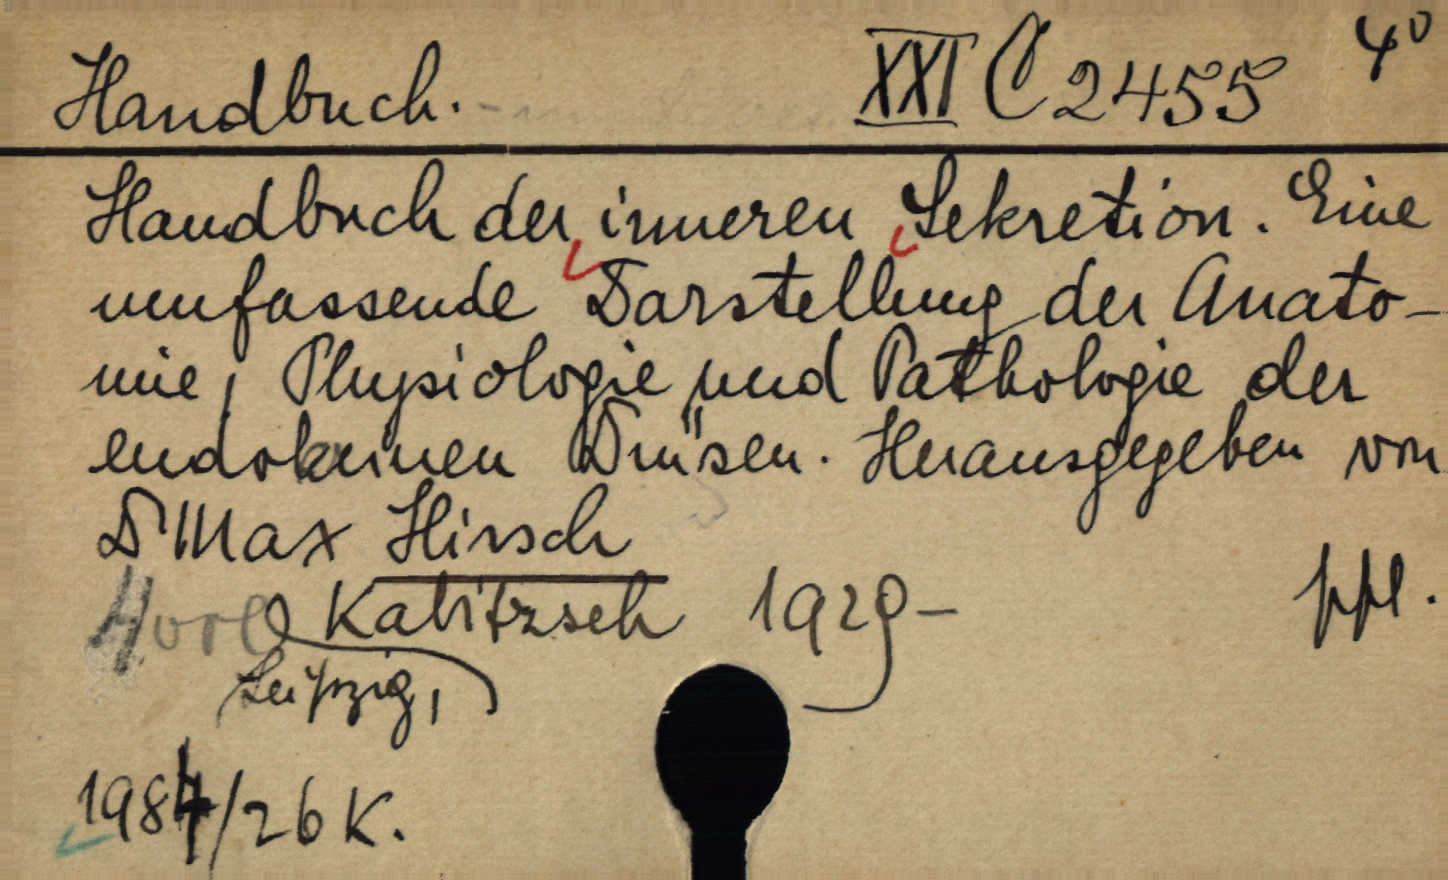 Handbuch. XXI C 2455 4°
Handbuch der inneren Sekretion. Eine
umfassende Darstellung der Anato-
mie, Physiologie und Pathologie der
endokrinen Drüsen. Herausgegeben von
Dr Max Hirsch
Kabitzsch 1929- ppl.
Leipzig,
1984/26 K.